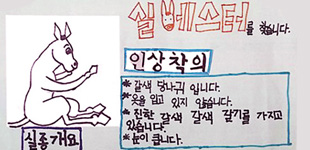 실베스터를 찾습니다.
인상착의
* 갈색 당나귀 입니다.
* 옷을 입고 있지 않습니다.
* 진한 갈색 갈색 갈기를 가지고
있습니다.
* 눈이 큽니다.
실종개요